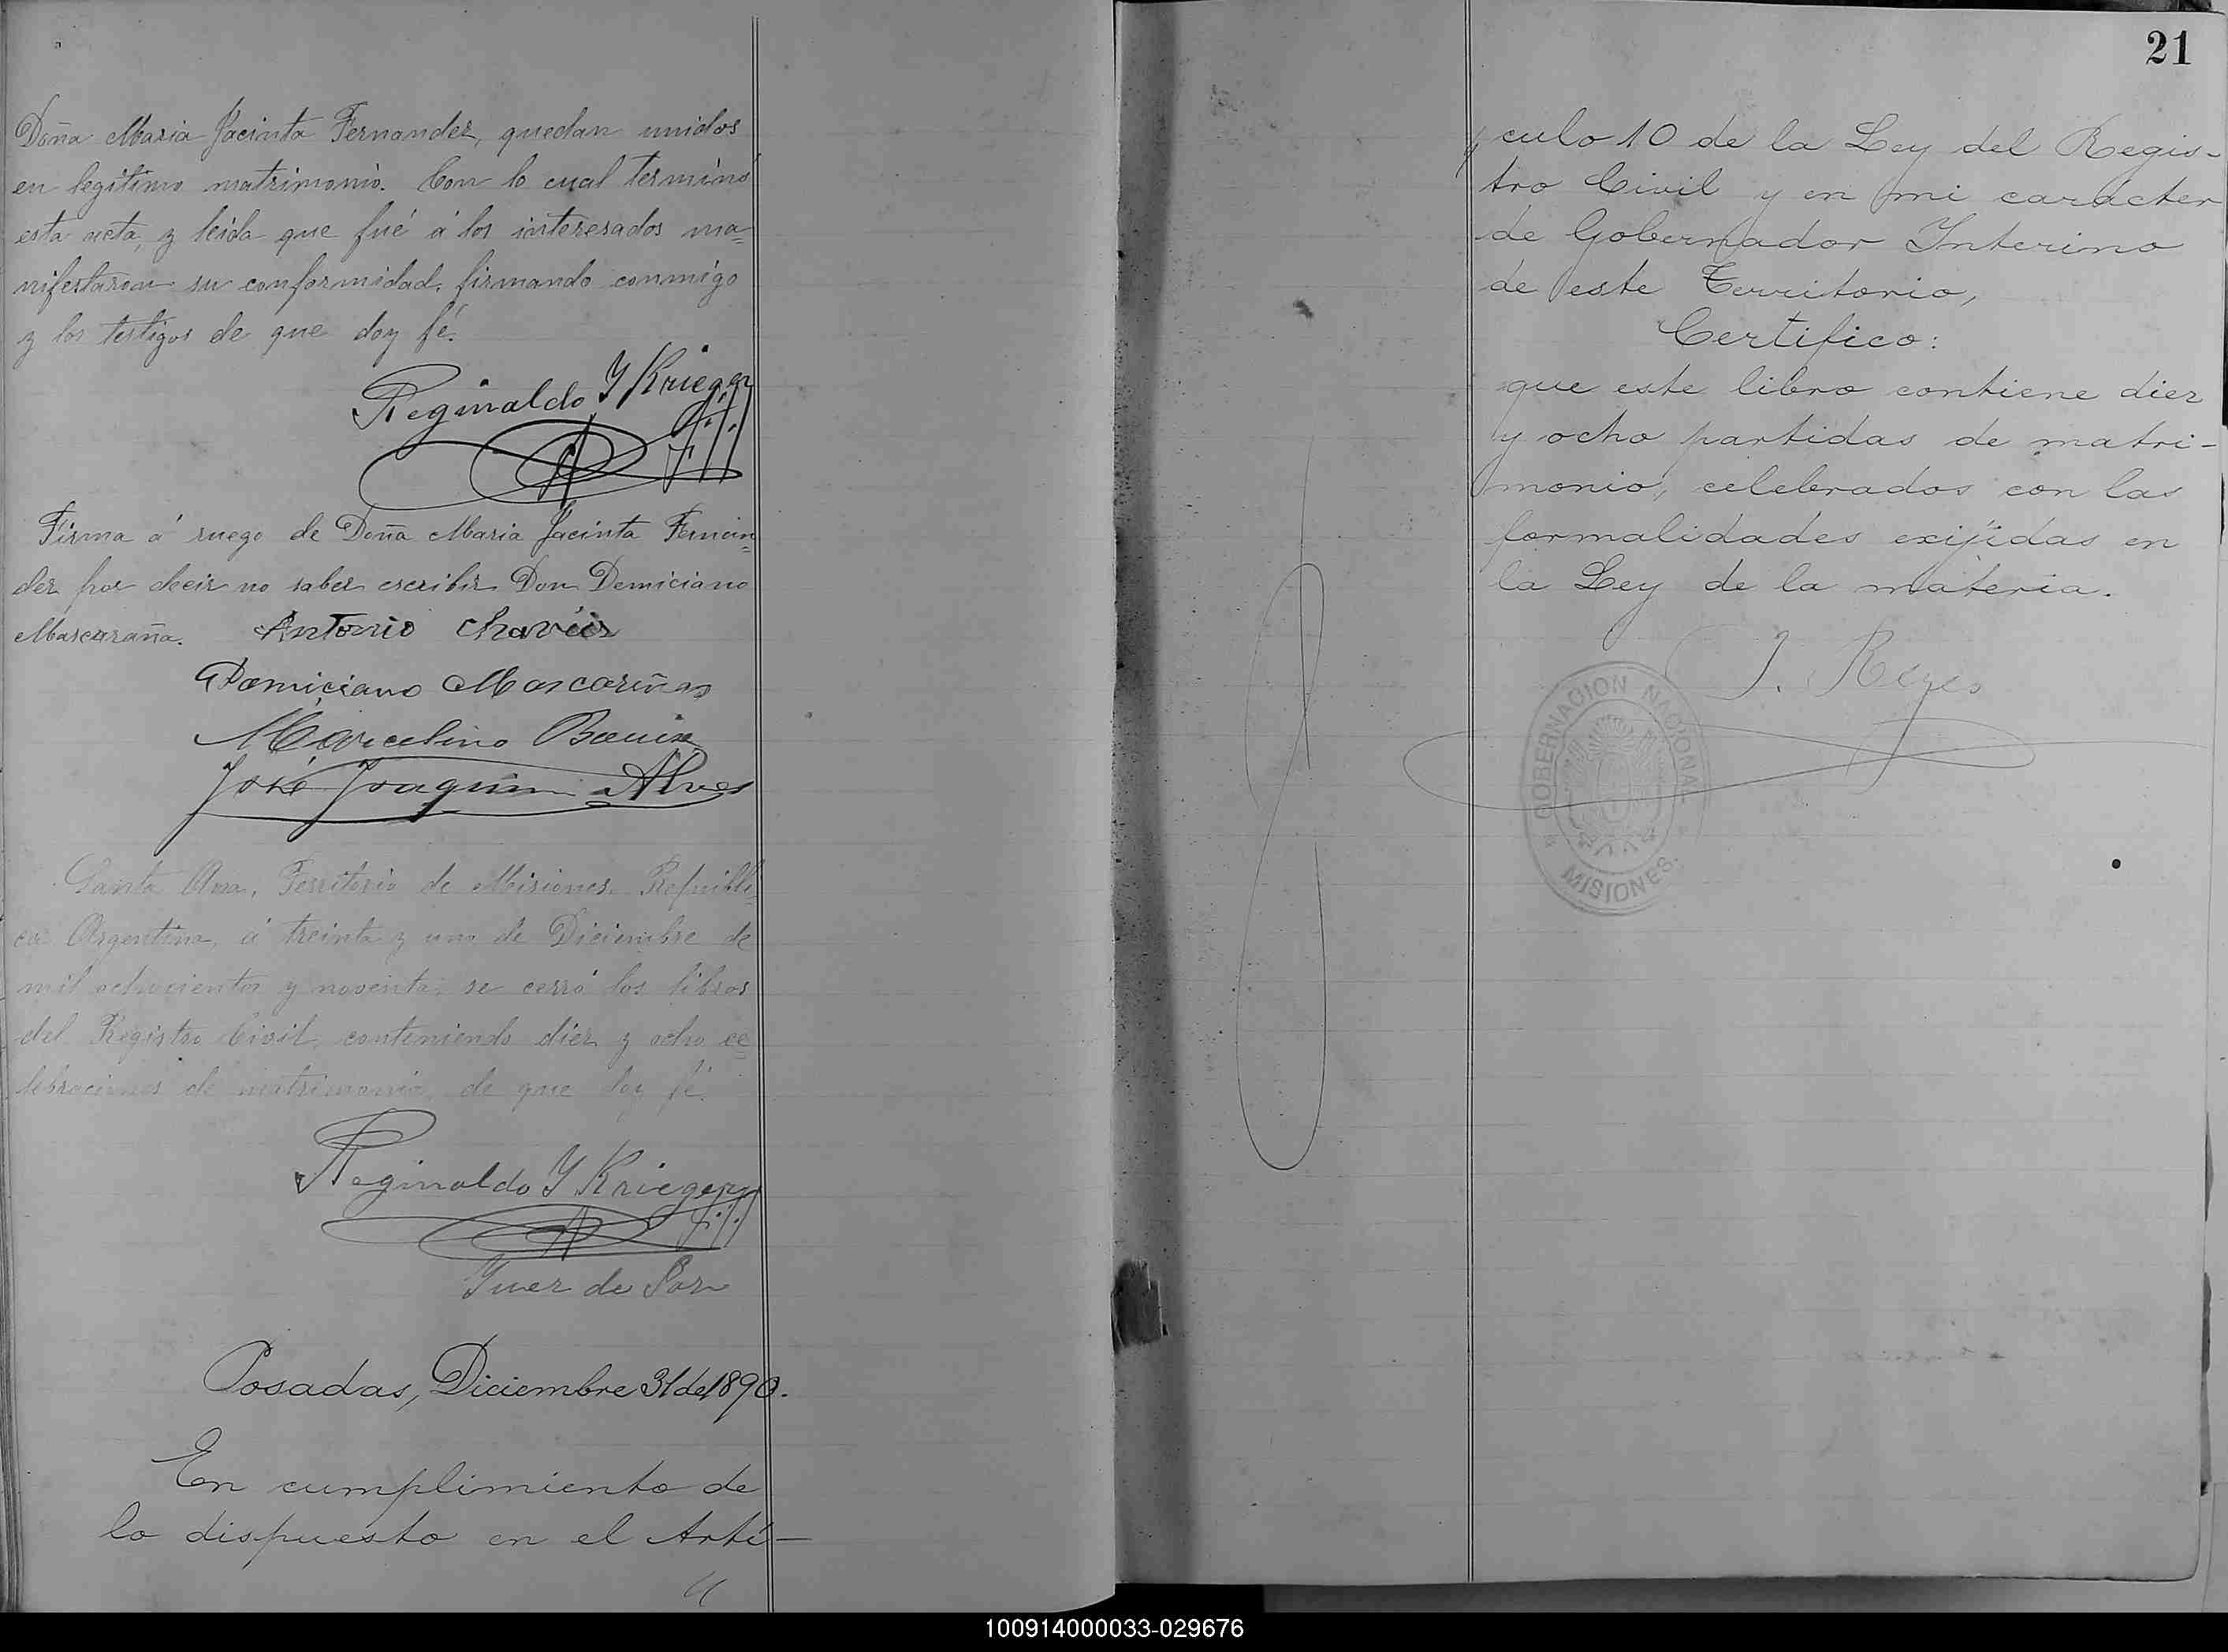 Doña Maria Jacinta Fernandez, quedan unidos
en legitimo matrimonio. Con lo cual terminó
esta acta, y leida que fué á los interesados ma=
nifestaron su conformidad, firmando conmigo
y los testigos de que doy fé.
Reginaldo Y Krieger
Firma á ruego de Doña Maria Jacinta Fernan=
dez por decir no saber escribir Don Demiciano
Mascaraña.
Antonio Chavéis
Domiciano Mascariñas
Marcelino
José Joaquim Alves
Santa Ana, Territorio de Misiones, Republi=
ca Argentina, á treinta y uno de Diciembre de
mil ochocientos y noventa, se cerró los libros
del Registro Civil, conteniendo diez y ocho ce=
lebraciones de matrimonio, de que doy fé.
Reginaldo Y Krieger
Juez de Paz
Posadas, Diciembre 31 de 1890.
En cumplimiento de
lo dispuesto en el Artí-
21
culo 10 de la Ley del Regis-
tro Civil y en mi carácter
de Gobernador Interino
de este Territorio,
Certifico:
que este libro contiene diez
y ocho partidas de matri-
monio, celebrados con las
formalidades exijidas en
la Ley de la materia.
J. Reyes
GOBERNACION NACIONAL
MISIONES
100914000033-029676